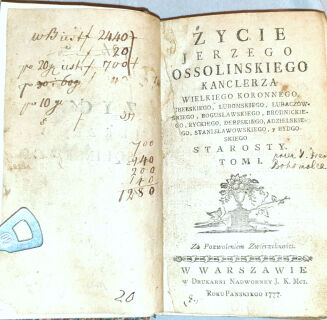 w Bust 2440
20
po 20
700
po 10
700
440
200
140
1280
20
ŻYCIE
JERZEGO
OSSOLINSKIEGO
KANCLERZA
WIELKIEGO KORONNEGO,
LUBOMSKIEGO, LUBACZOW-
SKIEGO, BOGUSŁAWSKIEGO, BRODNICKIE-
GO, RYCKIEGO, DERPSKIEGO, ADZIELSKIE-
GO, STANISŁAWOWSKIEGO, y BYDGO-
SKIEGO
STAROSTY.
TOM I.
przez
Bohomolca
Za Pozwoleniem Zwierzchności.
W WARSZAWIE
W DRUKARNI NADWORNEY J. K. MCI.
ROKU PAŃSKIEGO 1777.